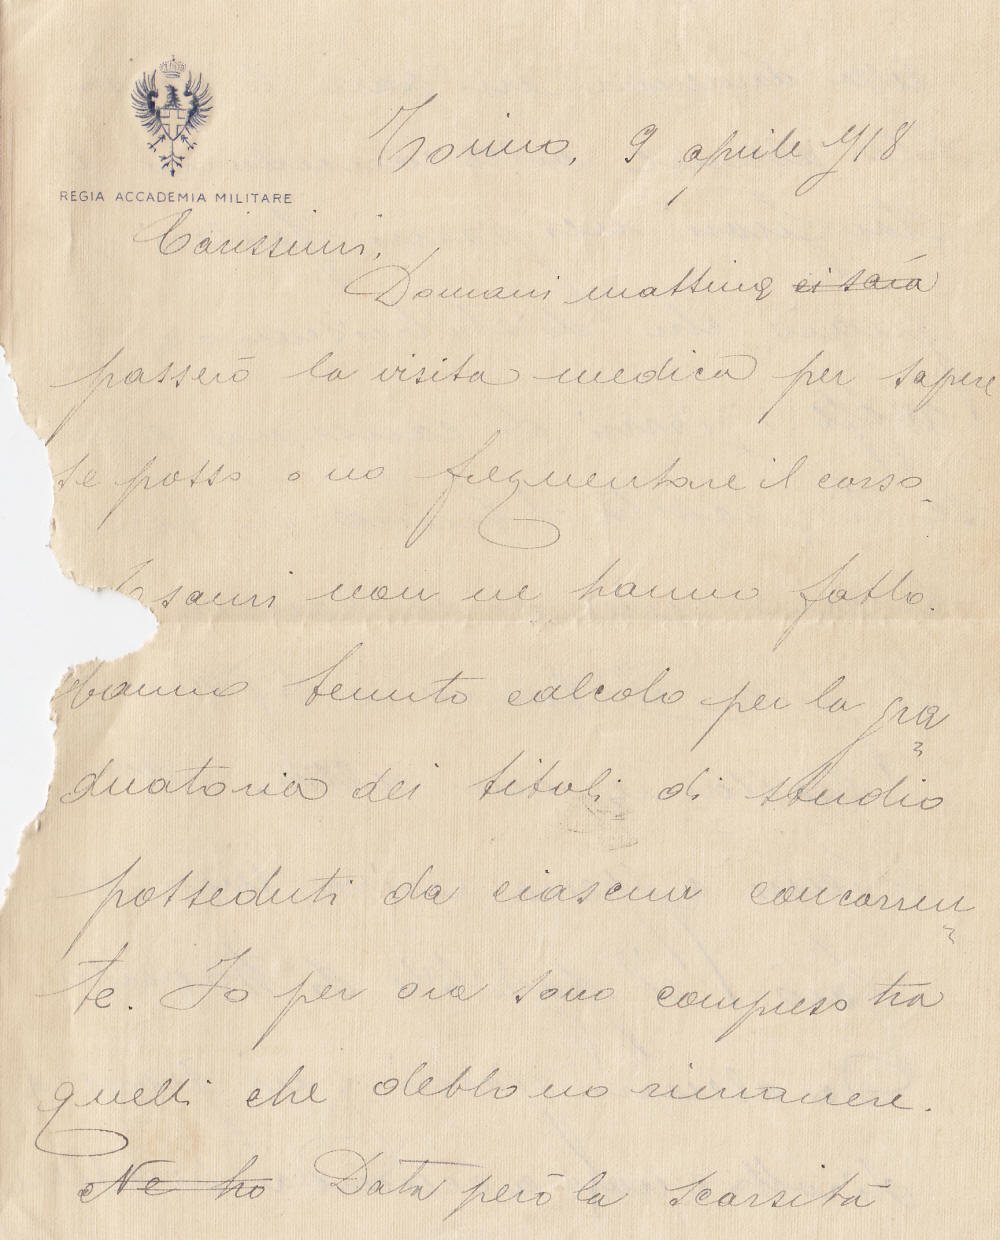 Torino, 9 aprile 918
REGIA ACCADEMIA MILITARE
Carissimi,
Domani mattina ci sarà
passerò la visita medica per sapere
se posso o no frequentare il corso.
Esami non ne hanno fatto.
Hanno tenuto calcolo per la gra
duatoria dei titoli di studio
posseduti da ciascun concorren
te. Io per ora sono compreso tra
quelli che debbono rimanere.
Ne ho Data però la scarsità